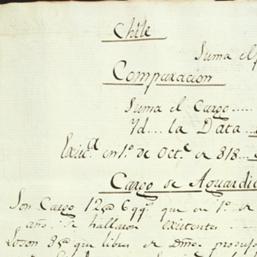 Chile
Suma el
Comparacion
Suma el Cargo....
Yd.... la Data....
Exist.ª en 1.º de Oct.e de 818...
Cargo de Aguardie
Son Cargo 12 @ 6 qq.s que en 1.º de
año. se hallaron existentes
que libras de